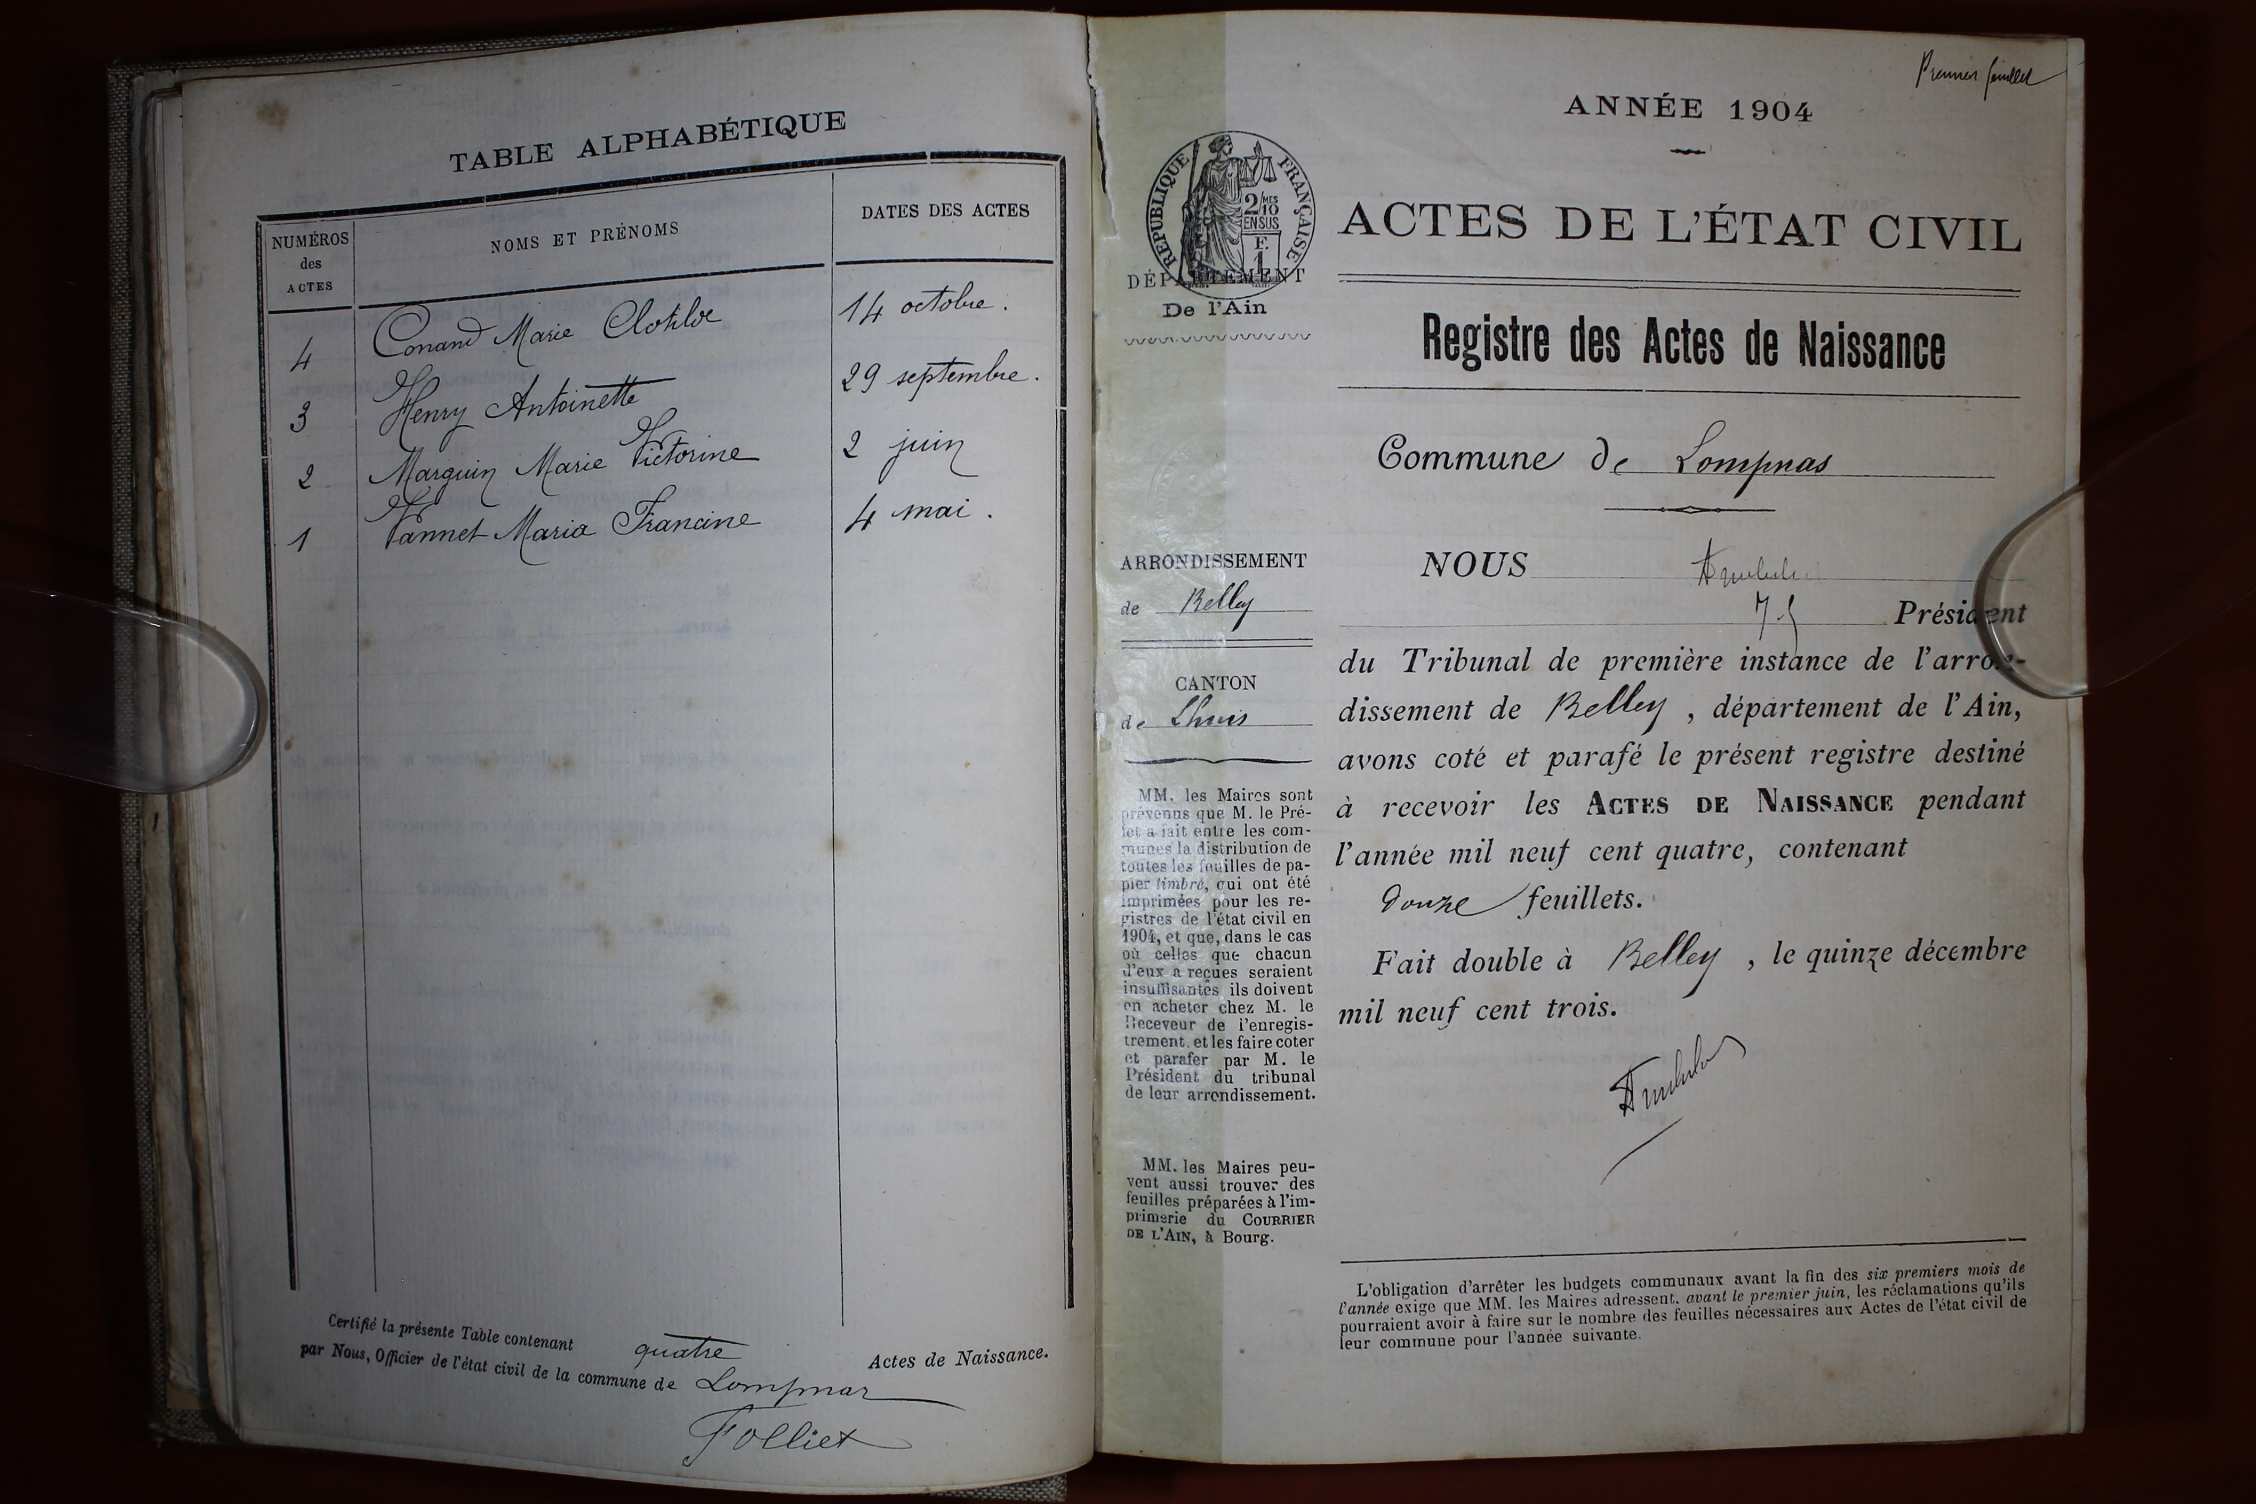 TABLE ALPHABÉTIQUE
NUMÉROS
des
ACTES
NOMS ET PRÉNOMS
DATES DES ACTES
4 Conand Marie Clotilde 14 octobre.
3 Henry Antoinette 29 septembre.
2 Marguin Marie Victorine 2 juin
1 Vannet Maria Francine 4 mai.
Certifié la présente Table contenant quatre Actes de Naissance.
par Nous, Officier de l'état civil de la commune de Lompnas
Folliet
Premier feuillet
ANNÉE 1904
RÉPUBLIQUE FRANÇAISE
2/10 MES
EN SUS
F.
1
DÉPARTEMENT
De l'Ain
ACTES DE L'ÉTAT CIVIL
Registre des Actes de Naissance
Commune de Lompnas
ARRONDISSEMENT
de Belley
CANTON
de Lhuis
MM. les Maires sont
prévenus que M. le Pré-
fet a fait entre les com-
munes la distribution de
toutes les feuilles de pa-
pier timbré, qui ont été
imprimées pour les re-
gistres de l'état civil en
1904, et que, dans le cas
où celles que chacun
d'eux a reçues seraient
insuffisantes ils doivent
en acheter chez M. le
Receveur de l'enregis-
trement. et les faire coter
et parafer par M. le
Président du tribunal
de leur arrondissement.
MM. les Maires peu-
vent aussi trouver des
feuilles préparées à l'im-
primerie du COURRIER
DE L'AIN, à Bourg.
NOUS
Président
du Tribunal de première instance de l'arron-
dissement de Belley, département de l'Ain,
avons coté et parafé le présent registre destiné
à recevoir les ACTES DE NAISSANCE pendant
l'année mil neuf cent quatre, contenant
douze feuillets.
Fait double à Belley, le quinze décembre
mil neuf cent trois.
L'obligation d'arrêter les budgets communaux avant la fin des six premiers mois de
l'année exige que MM. les Maires adressent. avant le premier juin, les réclamations qu'ils
pourraient avoir à faire sur le nombre des feuilles nécessaires aux Actes de l'état civil de
leur commune pour l'année suivante.